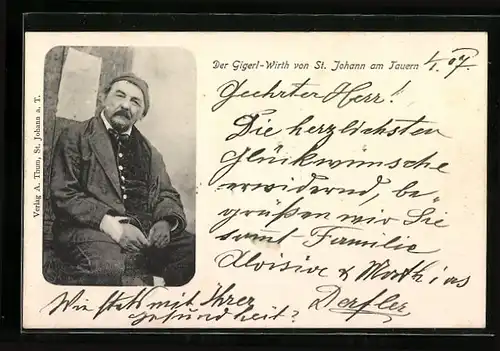 Der Gigerl-Wirth von St. Johann am Tauern
Verlag A. Thom, St. Johann a. T.
Geehrter Herr!
Die herzlichsten
Glückwünsche
erwidernd, be-
grüßen wir Sie
samt Familie
Aloisia &
Derfler
Wie steht mit Ihrer
Gesundheit?